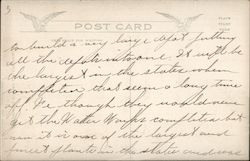 3
POST CARD
to build a very large depot putting
all the depots into one. It will be
the largest in the states when
completed that seems a long time
off. I've though they would never
get the Water Works completed but
now it is one of the largest and
finest plants in the states and was